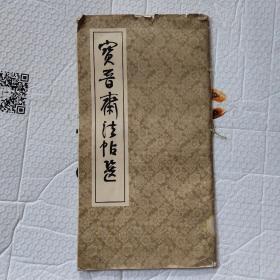 寶晉齋法帖選